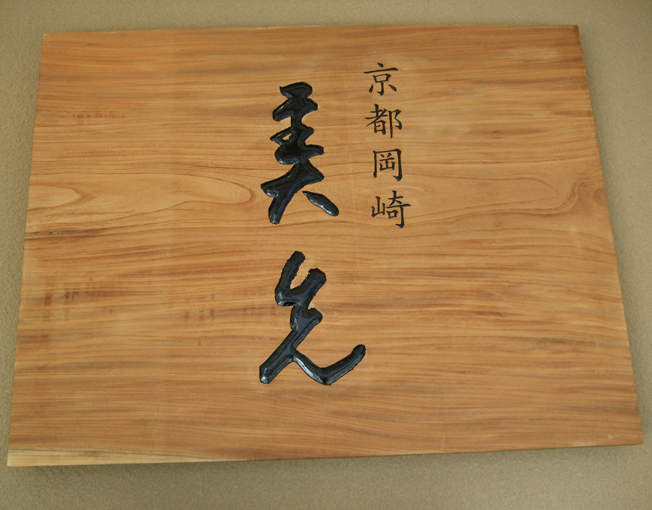 京都岡崎
美先